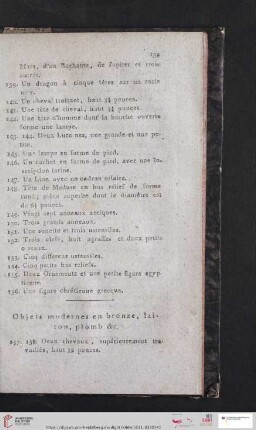 Mars, d'un Baghante, de Jupiter et trois
autres.
139. Un dragon à cinque têtes sur un socle
140. Un cheval trottant, haut 3½ pouces.
141. Une tête de cheval, haut 3½ pouces.
142. Une tête d'homme dont la bouche ouverte
forme une lampe.
143. 144. Deux Lucernes, une grande et une pe-
tite.
145. Une lampe en forme de pied.
146. Un cachet en forme de pied, avec une In-
scription latine.
147. Un Lion, avec un cadran solaire.
148. Tête de Meduse en bas relief de forme
rond; pièce superbe dont le diamètre est
de 6½ pouces.
149. Vingt sept anneaux antiques.
150. Trois grands anneaux.
151. Une sonette et trois
152. Trois clefs, huit agraffes et deux petits
153. Cinq differens ustensiles.
154. Cinq petits bas reliefs.
155. Deux Ornements et une petite figure egyp-
tienne.
156. Une figure chrétienne grecque.
Objets modernes en bronze, lai-
ton, plomb &c.
157. 158. Deux chevaux, supérieurement tra-
vaillés, haut pouces.